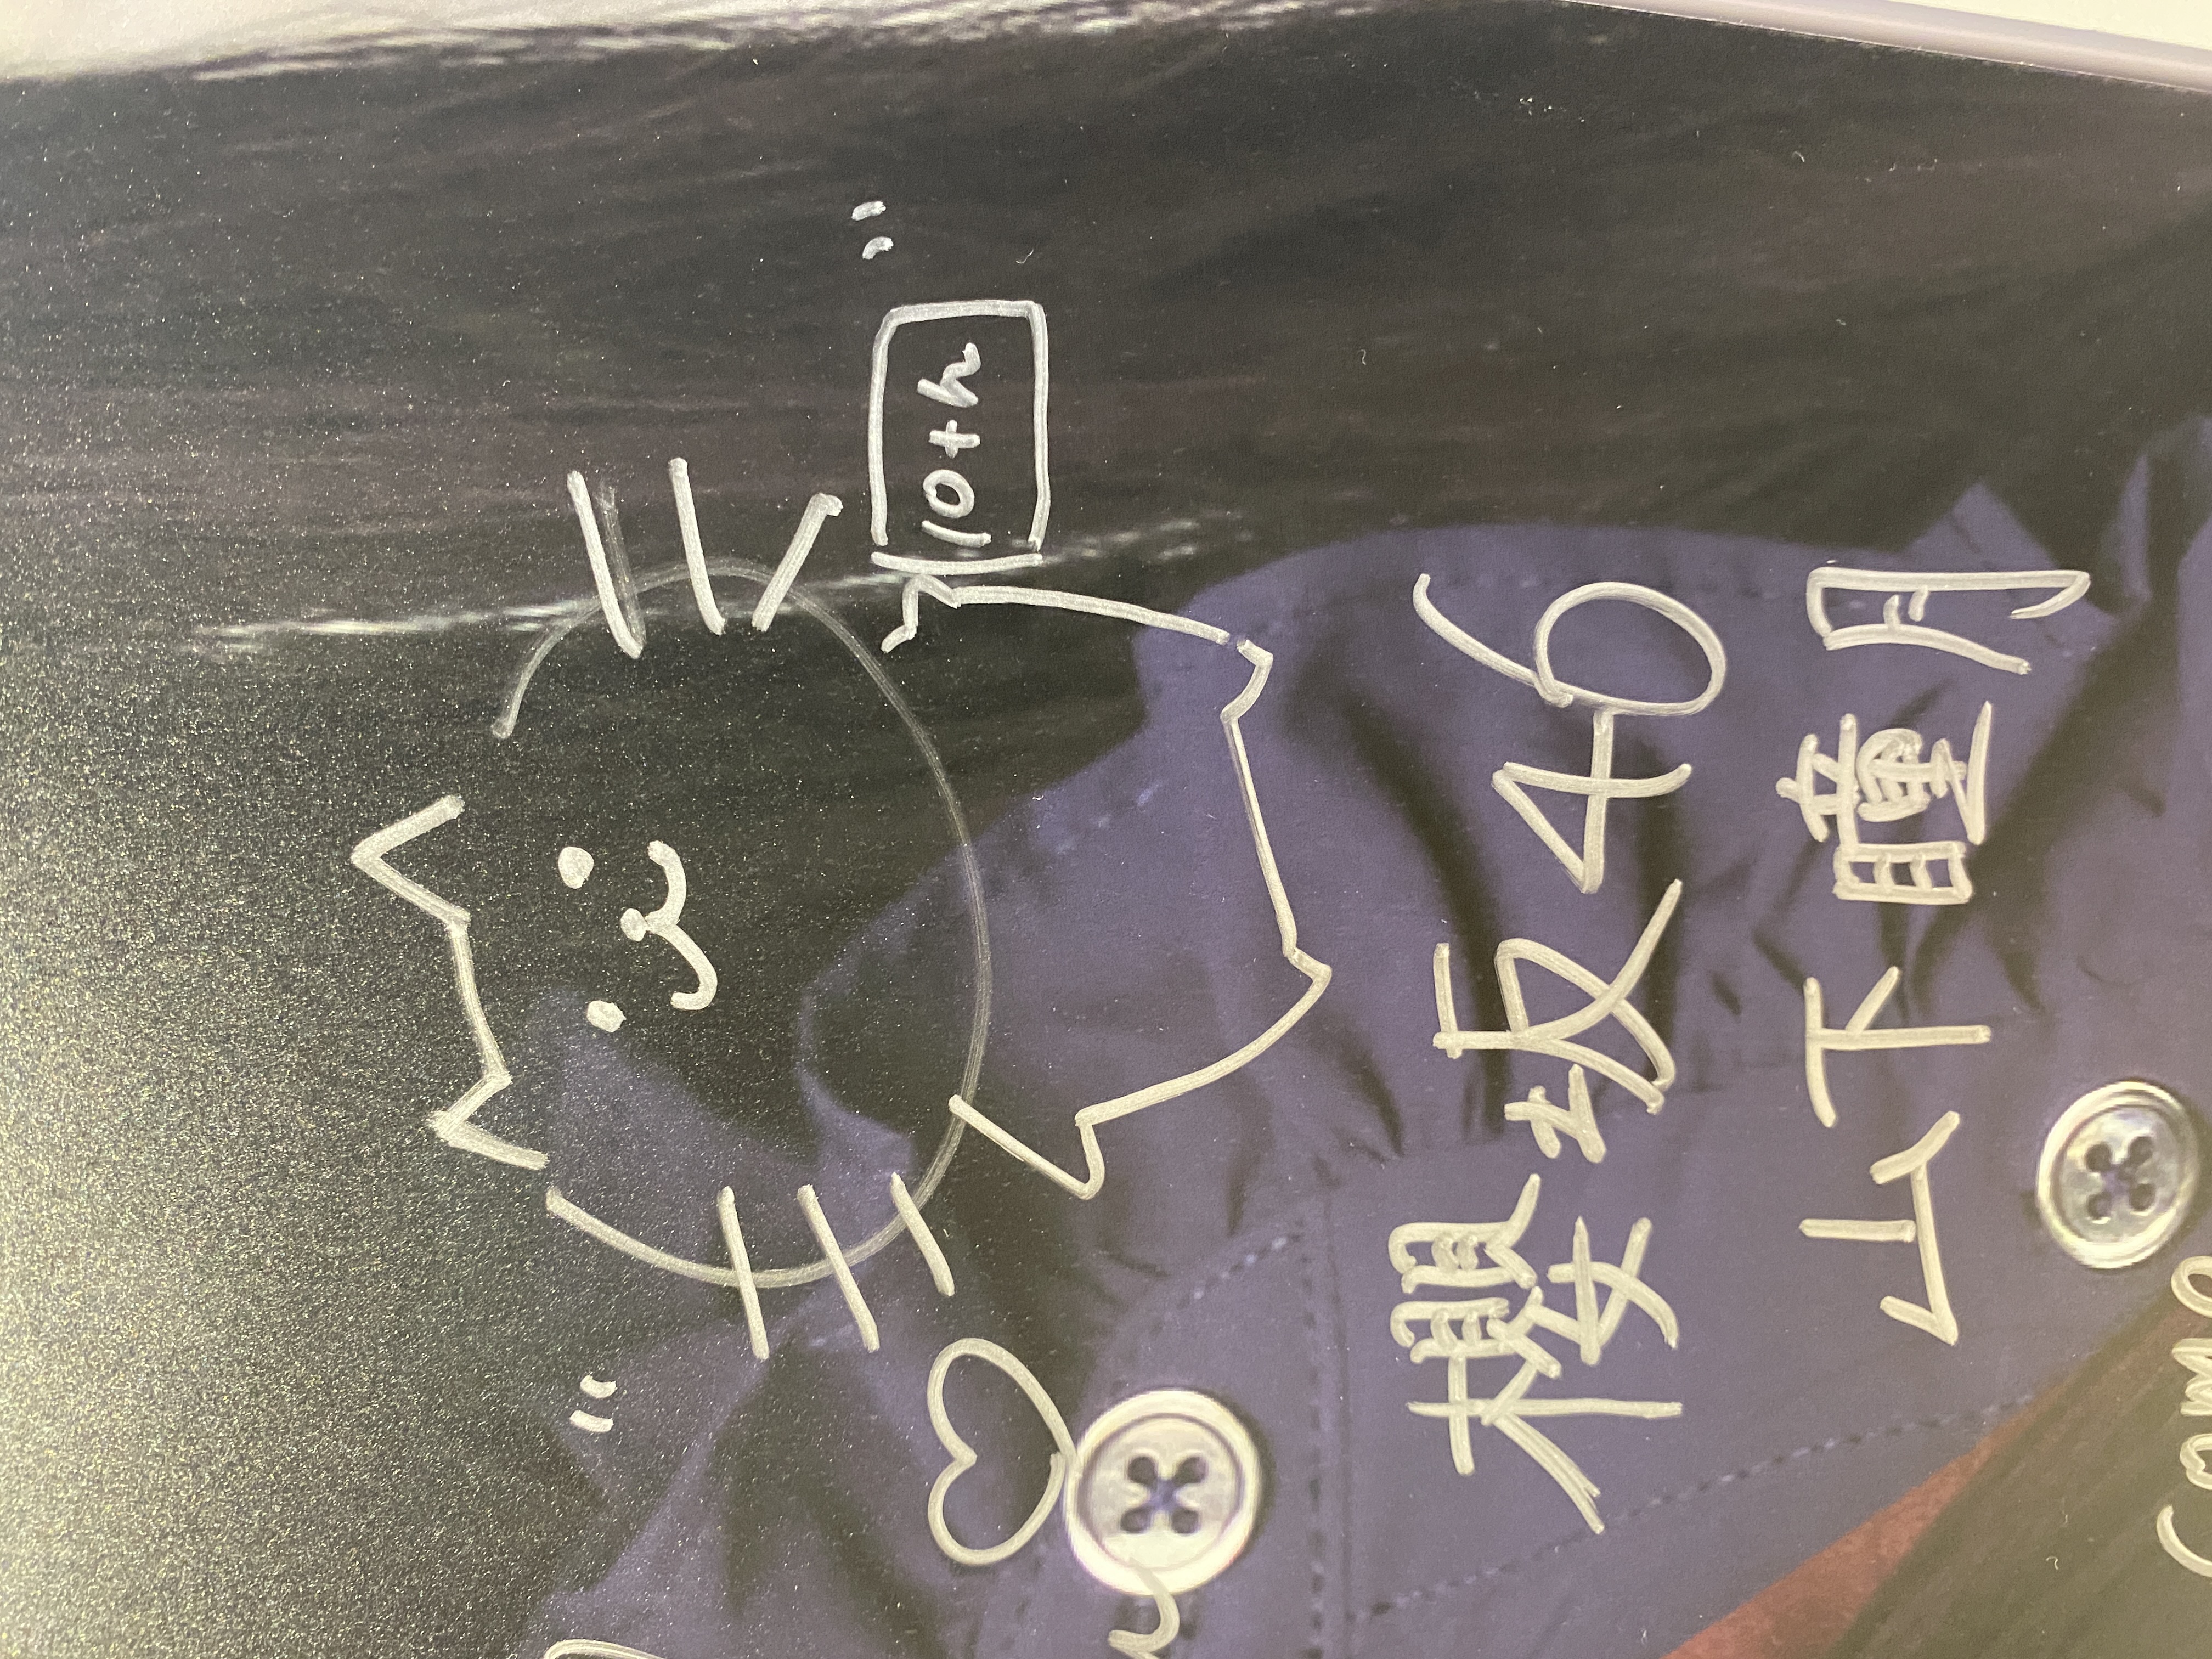 10th
櫻坂46
山下瞳月
come